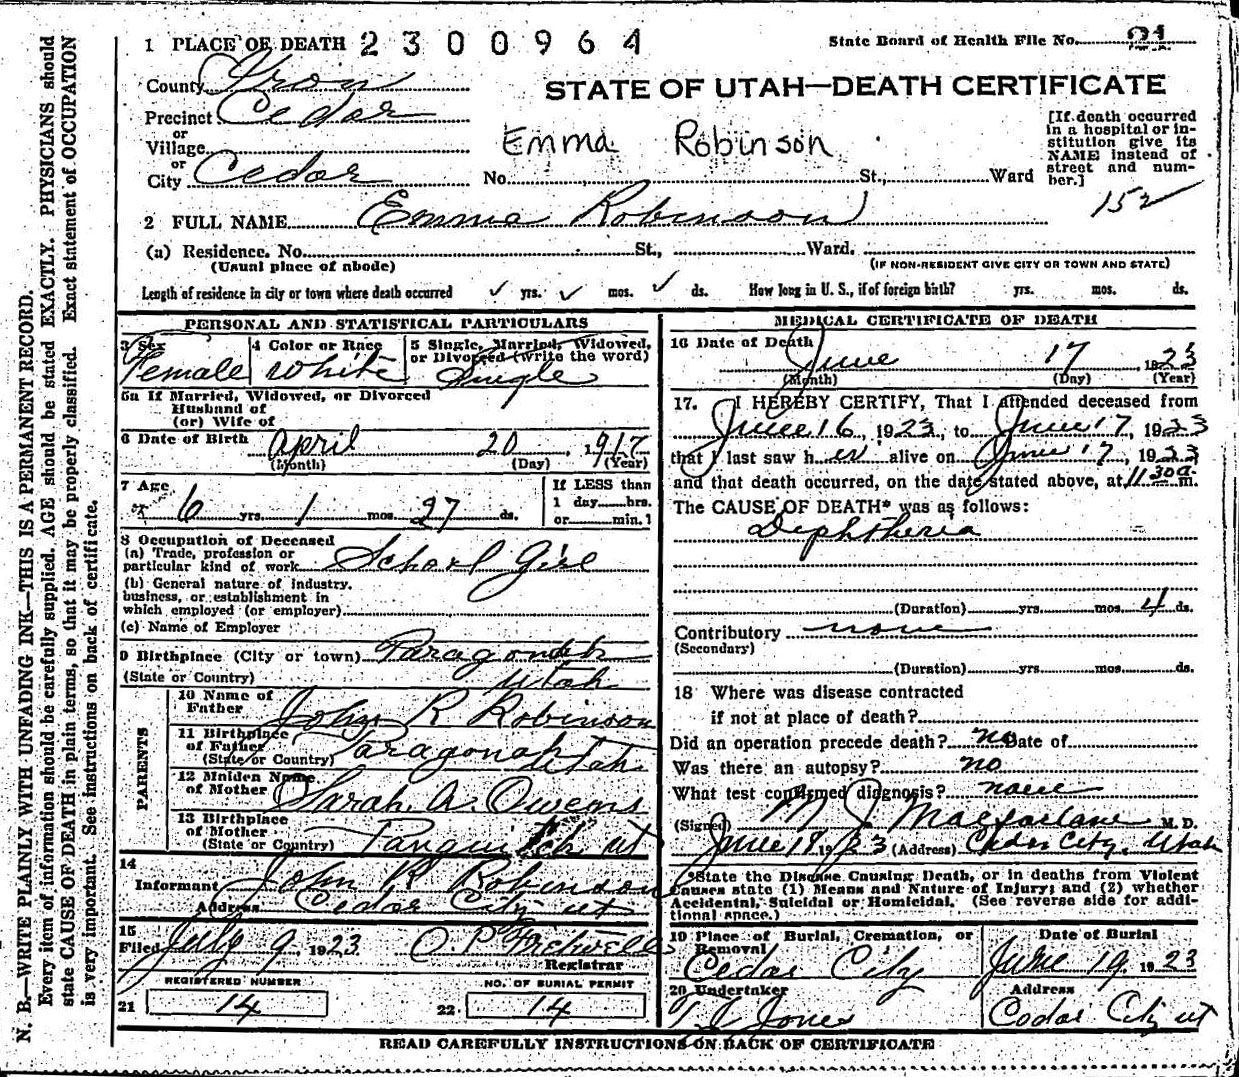 1 PLACE OF DEATH 2300964
State Board of Health File No. 21
County Iron
STATE OF UTAH—DEATH CERTIFICATE
Precinct Cedar
or
Village
or
City Cedar No. St., Ward
Emma Robinson
[If death occurred
in a hospital or in-
stitution give its
NAME instead of
street and num-
ber.]
152
2 FULL NAME Emma Robinson
(a) Residence. No. St., Ward.
(Usual place of abode) (IF NON-RESIDENT GIVE CITY OR TOWN AND STATE)
Length of residence in city or town where death occurred ✓ yrs. ✓ mos. ✓ ds. How long in U. S., if of foreign birth? yrs. mos. ds.
PERSONAL AND STATISTICAL PARTICULARS
3 Sex Female
4 Color or Race White
5 Single, Married, Widowed,
or Divorced (write the word)
Single
5a If Married, Widowed, or Divorced
Husband of
(or) Wife of
6 Date of Birth April 20, 1917
(Month) (Day) (Year)
7 Age
6 yrs. 1 mos. 27 ds.
If LESS than
1 day hrs.
or min.?
8 Occupation of Deceased
(a) Trade, profession or
particular kind of work School Girl
(b) General nature of industry,
business, or establishment in
which employed (or employer)
(c) Name of Employer
9 Birthplace (City or town) Paragonah
(State or Country) Utah
PARENTS
10 Name of
Father John R Robinson
11 Birthplace
of Father Paragonah
(State or Country) Utah
12 Maiden Name
of Mother Sarah A. Owens
13 Birthplace
of Mother
(State or Country) Panguitch ut
14
Informant John R Robinson
Address Cedar City ut
15
Filed July 9, 1923 O. P. Fretwell
Registrar
REGISTERED NUMBER
21 14
NO. OF BURIAL PERMIT
22 14
MEDICAL CERTIFICATE OF DEATH
16 Date of Death
June 17, 1923
(Month) (Day) (Year)
17. I HEREBY CERTIFY, That I attended deceased from
June 16, 1923, to June 17, 1923
that I last saw her alive on June 17, 1923
and that death occurred, on the date stated above, at 11 30 a. m.
The CAUSE OF DEATH* was as follows:
Diphtheria
(Duration) yrs. mos. 4 ds.
Contributory none
(Secondary)
(Duration) yrs. mos. ds.
18 Where was disease contracted
if not at place of death?
Did an operation precede death? no Date of
Was there an autopsy? no
What test confirmed diagnosis? none
(Signed) M J Macfarlane M. D.
June 18, 1923 (Address) Cedar City, Utah
*State the Disease Causing Death, or in deaths from Violent
Causes state (1) Means and Nature of Injury; and (2) whether
Accidental, Suicidal or Homicidal. (See reverse side for addi-
tional space.)
19 Place of Burial, Cremation, or
Removal
Cedar City
Date of Burial
June 19, 1923
20 Undertaker
Jones
Address
Cedar City ut
READ CAREFULLY INSTRUCTIONS ON BACK OF CERTIFICATE
N. B.—WRITE PLAINLY WITH UNFADING INK—THIS IS A PERMANENT RECORD.
Every item of information should be carefully supplied. AGE should be stated EXACTLY. PHYSICIANS should
state CAUSE OF DEATH in plain terms, so that it may be properly classified. Exact statement of OCCUPATION
is very important. See instructions on back of certificate.